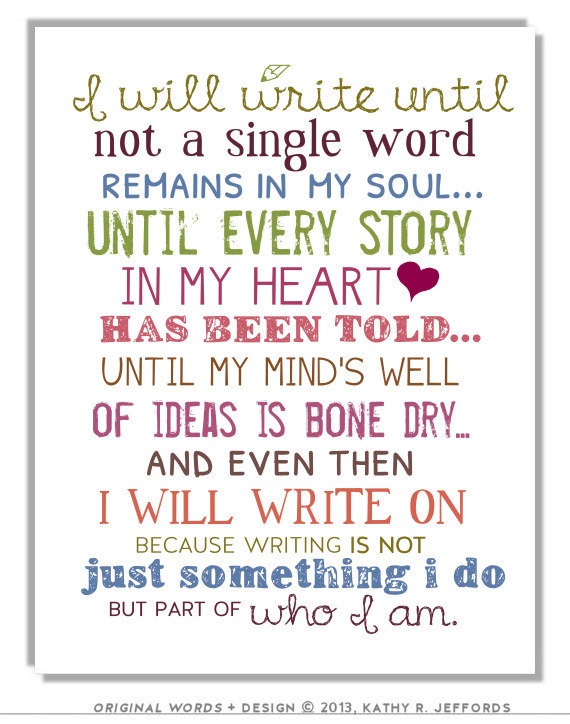 I will write until
not a single word
REMAINS IN MY SOUL...
UNTIL EVERY STORY
IN MY HEART
HAS BEEN TOLD...
UNTIL MY MIND'S WELL
OF IDEAS IS BONE DRY...
AND EVEN THEN
I WILL WRITE ON
BECAUSE WRITING IS NOT
just something i do
BUT PART OF who I am.
ORIGINAL WORDS + DESIGN © 2013, KATHY R. JEFFORDS